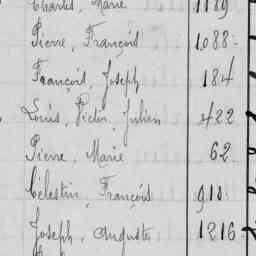 Charles, Marie 1189
Pierre, François 1088
François, Joseph 184
Louis, Victor, Julien 422
Pierre, Marie 62
Célestin, François 918
Joseph, Auguste 1216